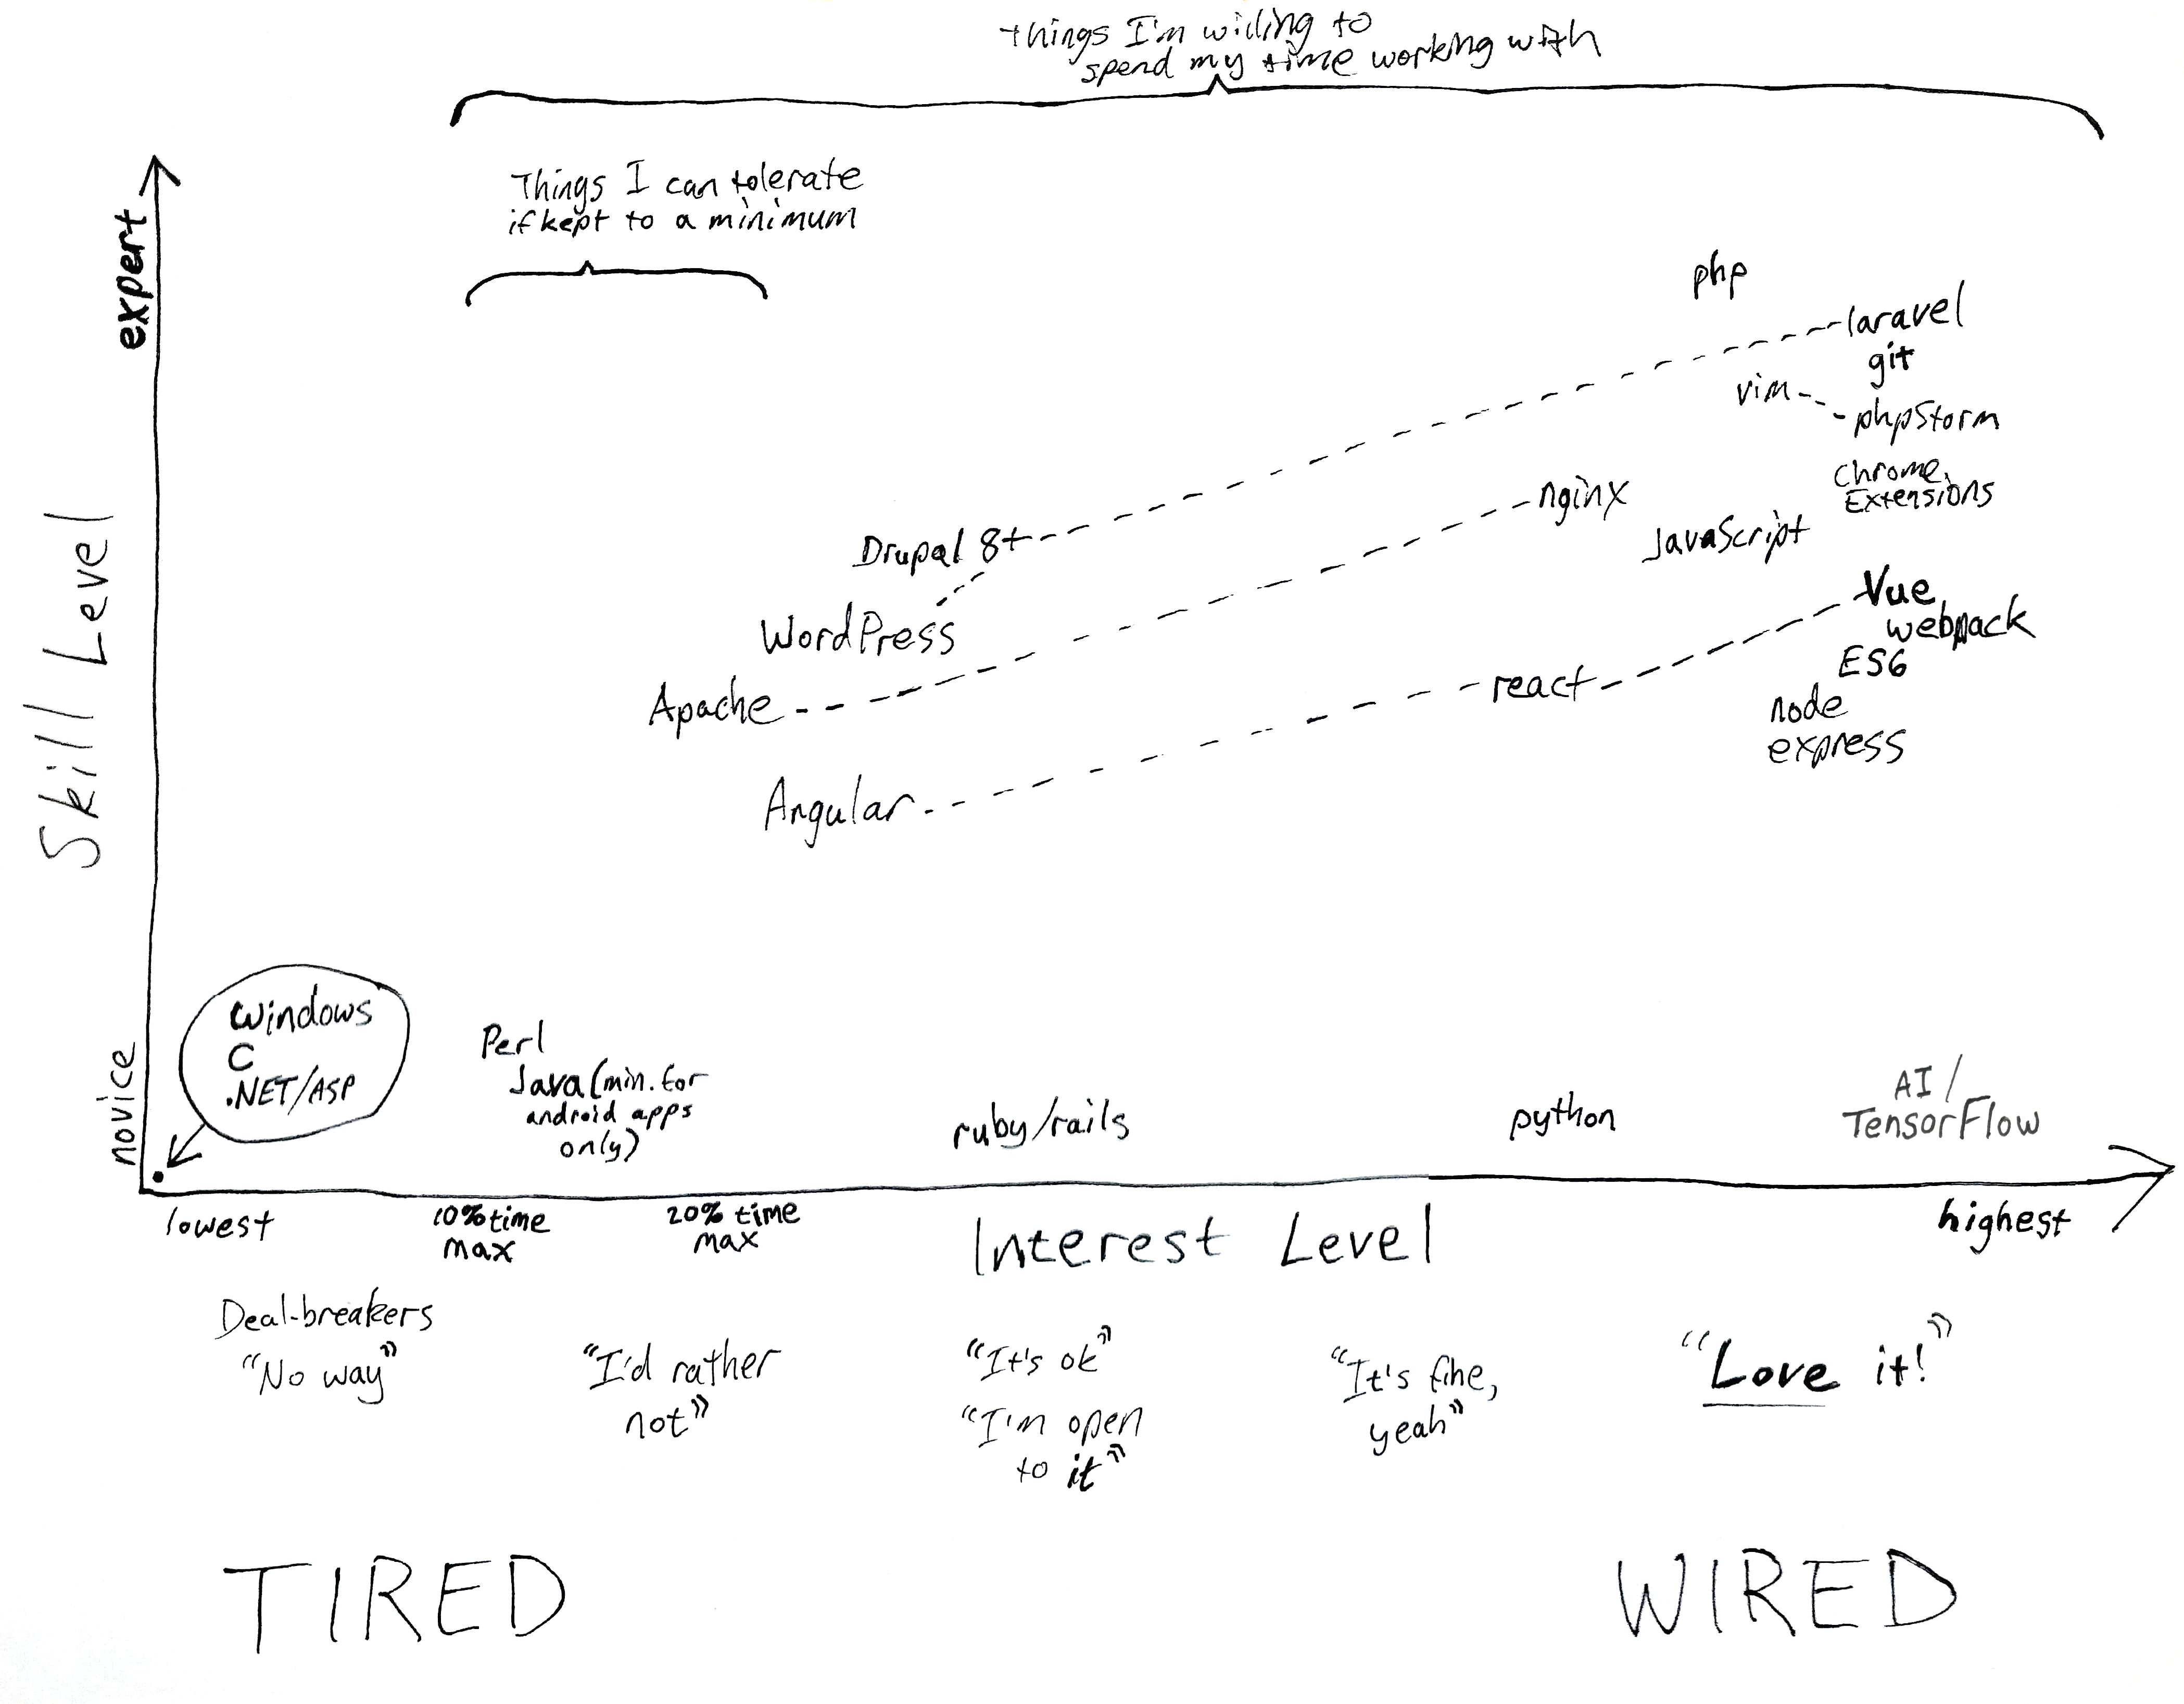 Things I'm willing to
spend my time working with
Things I can tolerate
if kept to a minimum
expert
Skill Level
novice
php
laravel
git
vim
phpStorm
Chrome
Extensions
nginx
JavaScript
Drupal 8+
WordPress
Apache
Vue
webpack
ES6
react
node
express
Angular
Windows
C
.NET/ASP
Perl
Java (min. for
android apps
only)
ruby/rails
python
AI/
TensorFlow
lowest
10% time
max
20% time
max
Interest Level
highest
Deal-breakers
"No way"
"I'd rather
not"
"It's ok"
"I'm open
to it"
"It's fine,
yeah"
"Love it!"
TIRED
WIRED